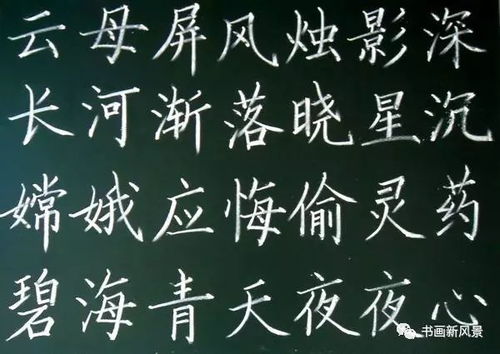 云母屏风烛影深
长河渐落晓星沉
嫦娥应悔偷灵药
碧海青天夜夜心
书画新风景